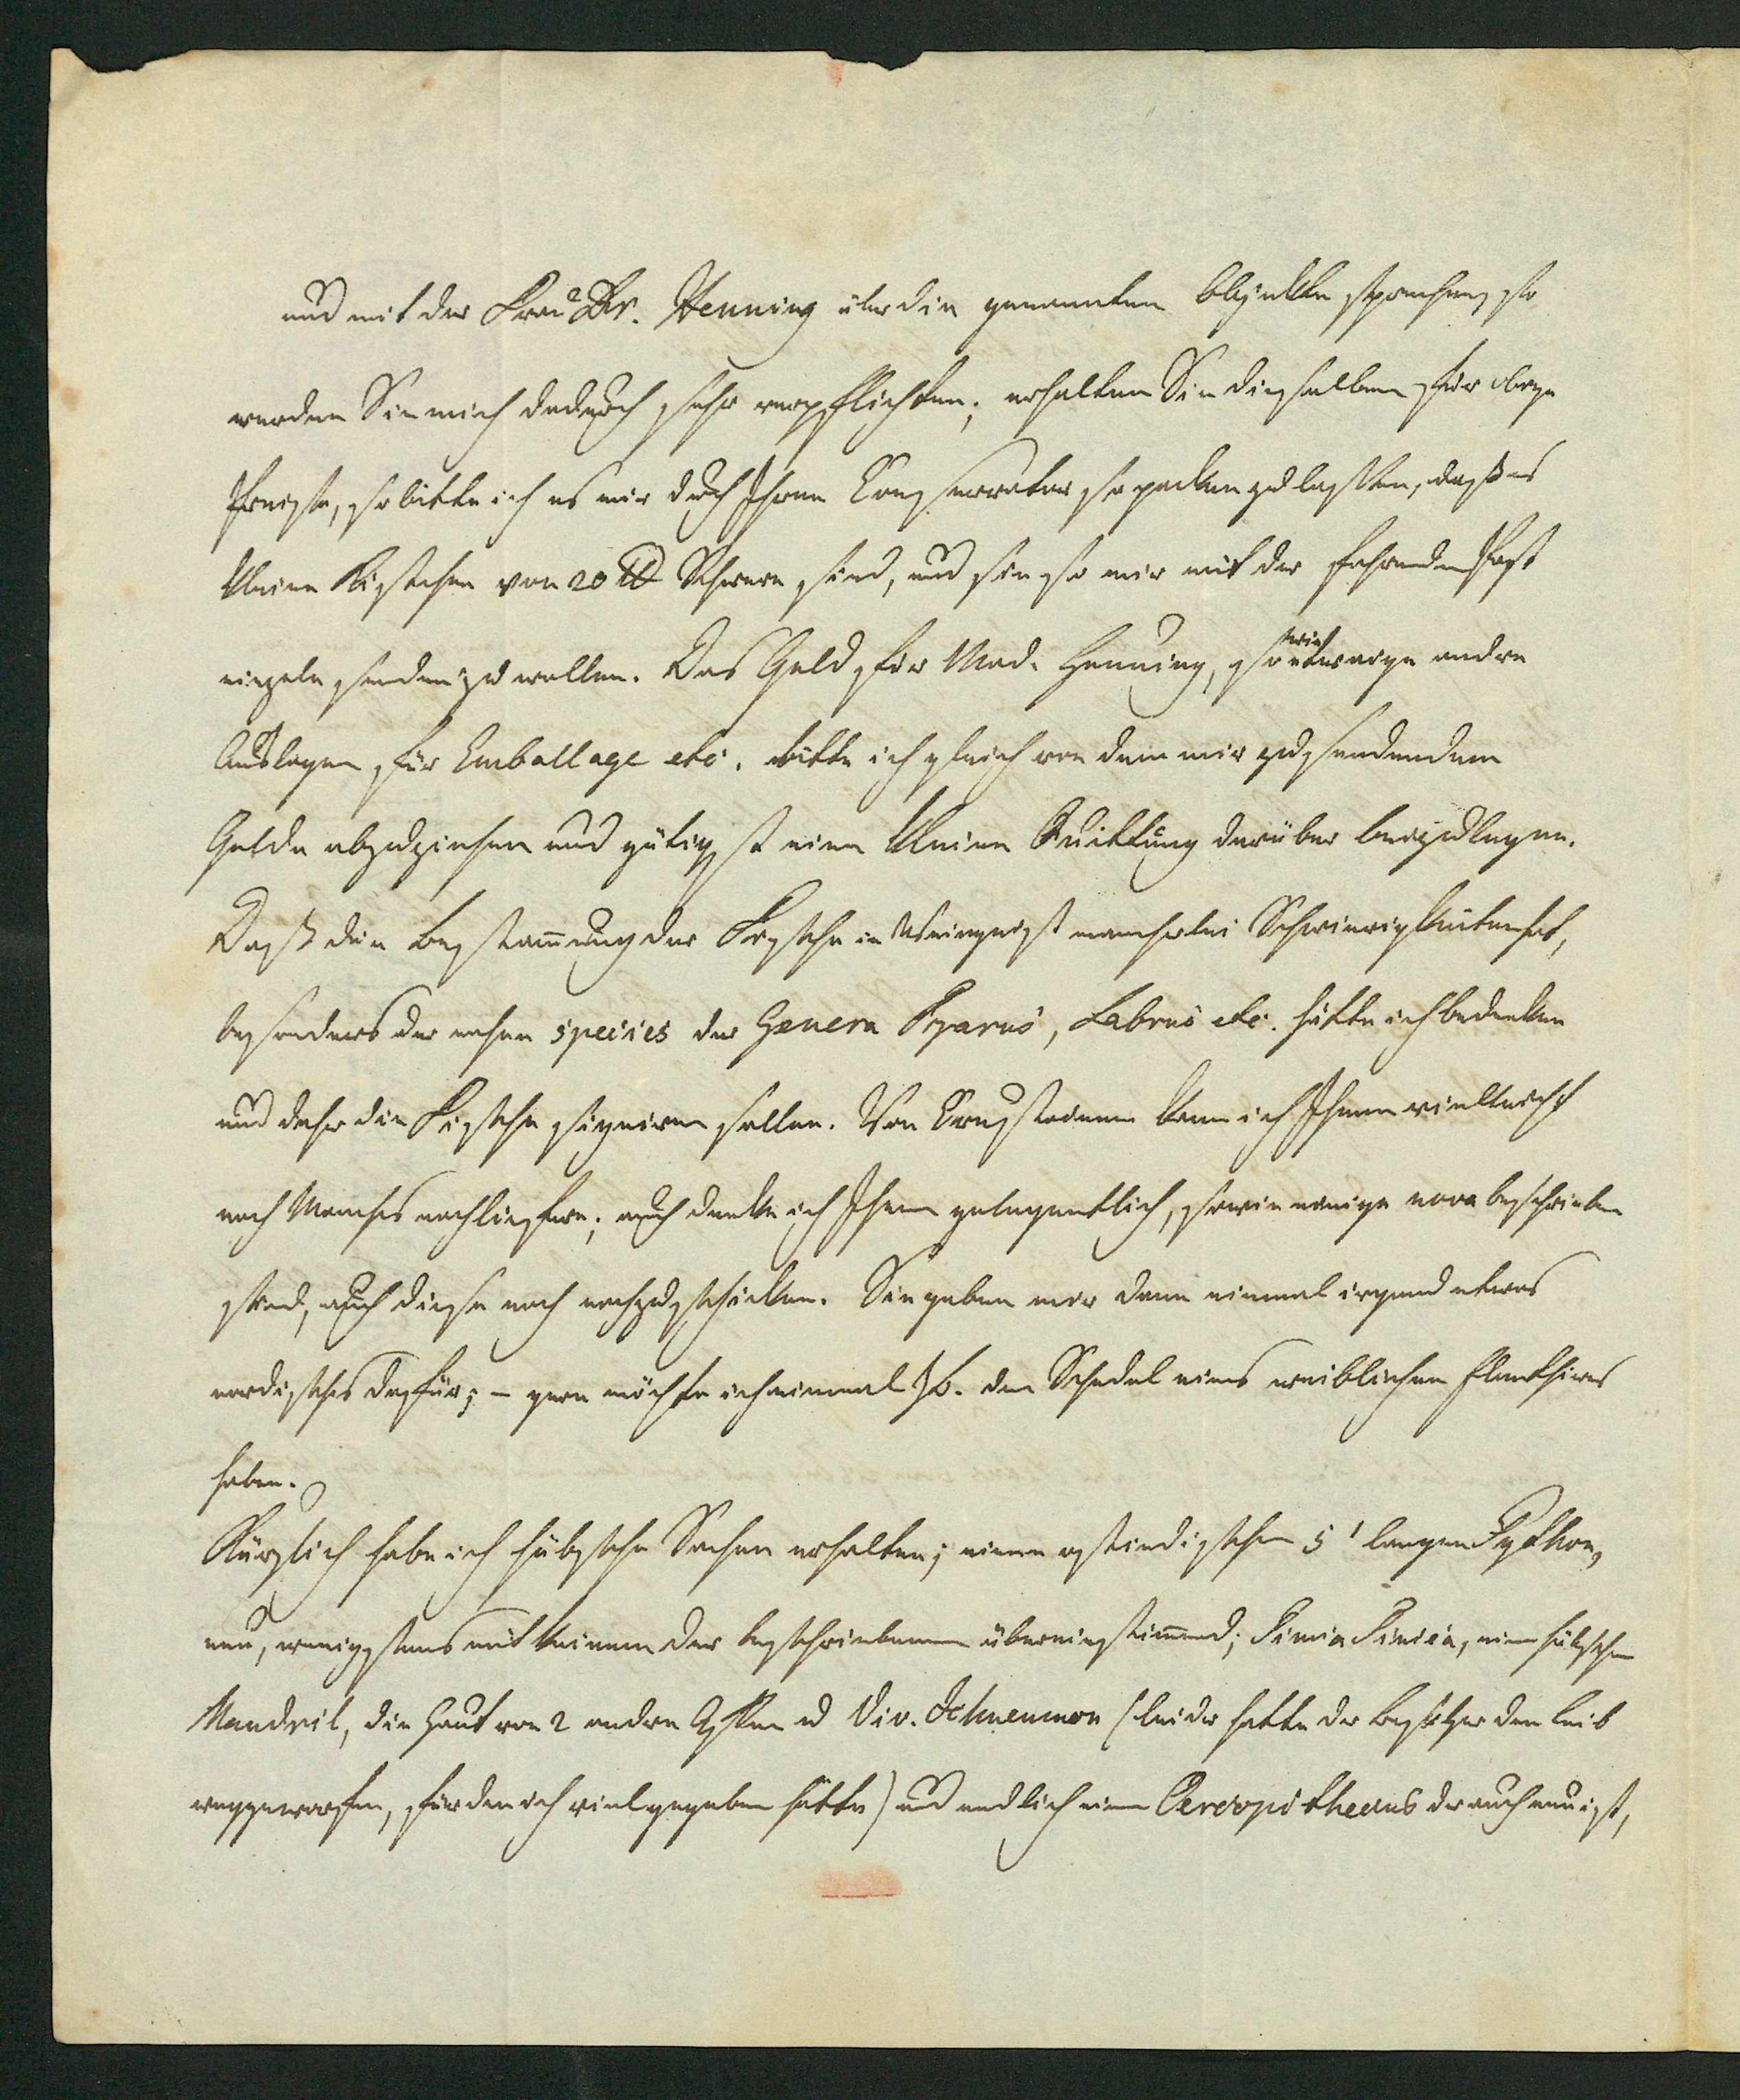 und mit der Frau Dr. Henning über die genannten Objekte sprechen, so
werden Sie mich dadurch sehr verpflichten; erhalten Sie dieselben für obige
Preise, so bitte ich es mir durch Ihren Conservator so packen zu lassen, daß es
kleine Kistchen von 20 ℔ Schwere sind, und sie so mir mit der fahrenden Post
einzeln senden zu wollen. Das Geld für Mad. Henning, so wie etwaige andre
Auslagen für Emballage etc. bitte ich gleich von dem mir zusendenden
Gelde abzuziehen und gütigst eine kleine Quittung darüber beizulegen.
Daß die Bestim̄ung der Fische in Weingeist mancherlei Schwierigkeiten hat,
besonders der nahen species der Genera Sparus, Labrus etc. hätte ich bedenken
und daher die Fische signiren sollen. Von Crustaceen kann ich Ihnen vielleicht
noch Manches nachliefern; auch denke ich Ihnen gelegentlich, sowie einige nova beschrieben
sind, auch diese noch nachzuschicken. Sie geben mir dann einmal irgend etwas
nordisches dafür; – gern möchte ich einmal z. b. den Schedel eines weiblichen Elenthiers
haben.
Kürzlich habe ich hübsche Sachen erhalten; einen ostindischen 5' langen Python,
neu, wenigstens mit keinem der beschriebenen übereinstim̄end; Simia Sinica, einen hübschen
Mandril, die Haut von 2 andren Affen u Viv. Ichneumon (leider hatte der Besitzer den Leib
weggeworfen, für den ich viel gegeben hätte) und endlich einen Cercopithecus der auch neu ist,